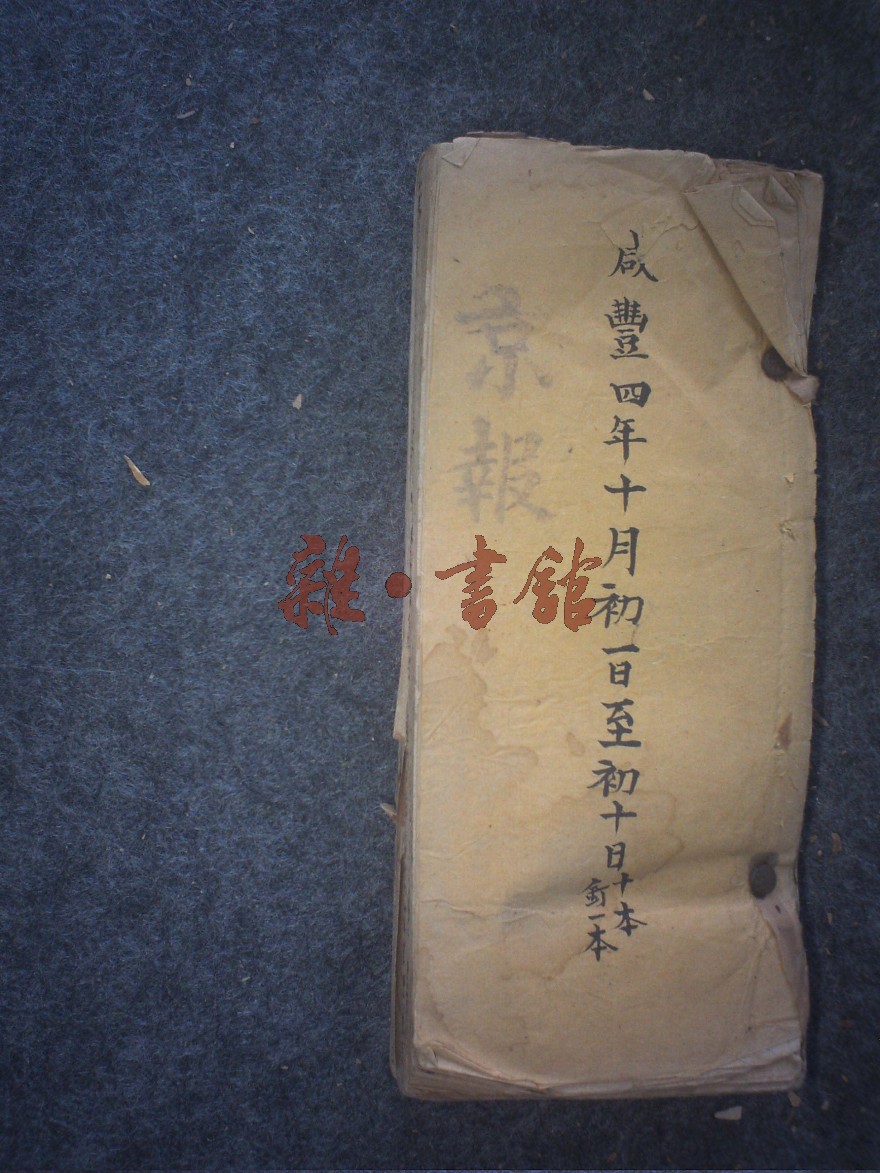 咸豐四年十月初一日至初十日十本
釘一本
京報
雜·書館